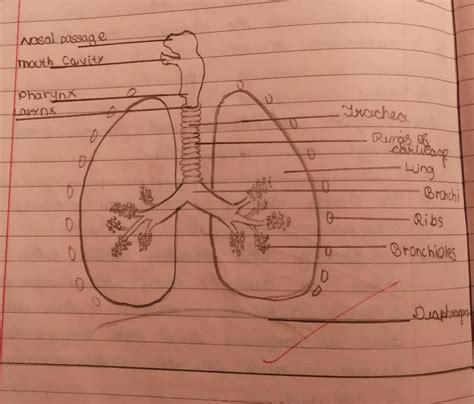 Nasal passage
mouth cavity
pharynx
Larynx
Trachea
Rings of
cartilage
Lung
Bronchi
Ribs
Bronchioles
Diaphragm